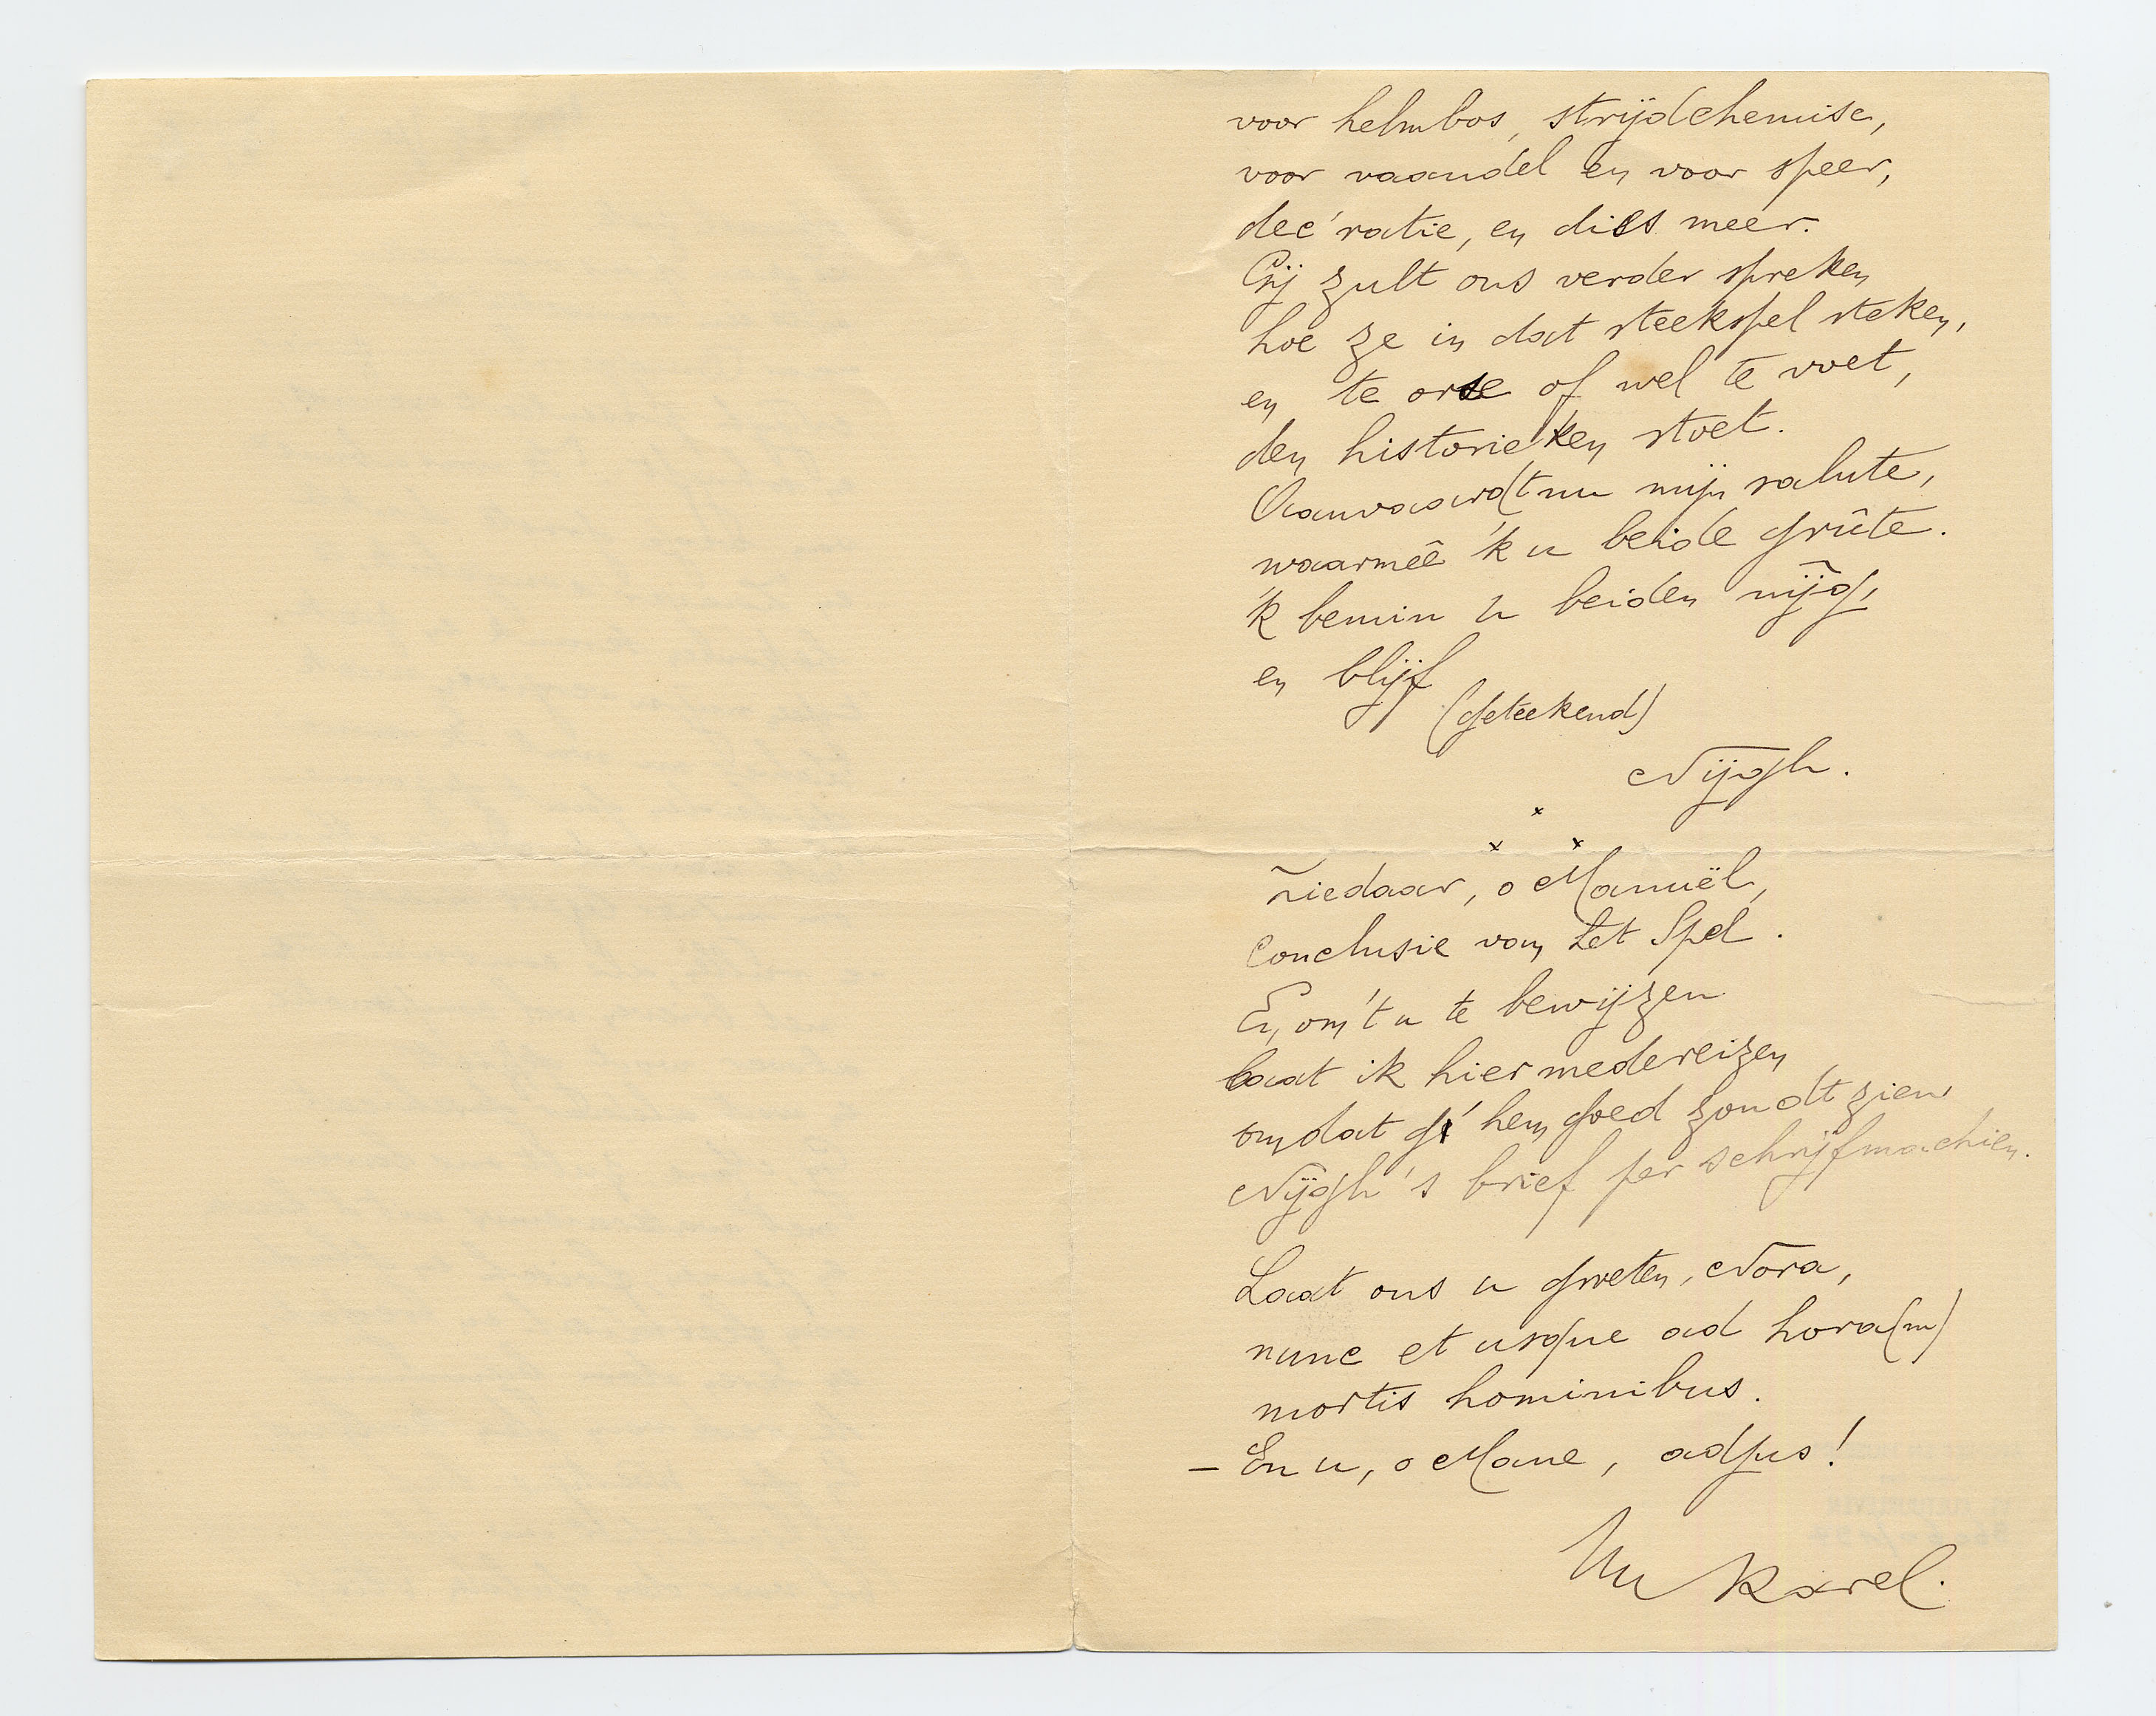 voor helmbos, strijdchemise,
voor vaandel en voor speer,
dec'ratie, en dies meer.
Gij zult ons verder spreken
hoe ze in dat steekspel steken,
en te orse of wel te voet,
den historieken stoet.
Aanvaardt nu mijn salute,
waarmêe 'k u beide grûte.
'k bemin u beiden nijg,
en blijf
(geteekend)
Nijgh.
x
x x
Ziedaar, o Manuël,
conclusie van het Spel.
En, om 't u te bewijzen
laat ik hier medereizen
omdat g' hem goed zoudt zien
Nijgh's brief per schrijfmachien.
Laat ons u groeten, Nora,
nunc et usque ad hora(m)
mortis hominibus.
— En u, o Mane, adjus!
Uw Karel.